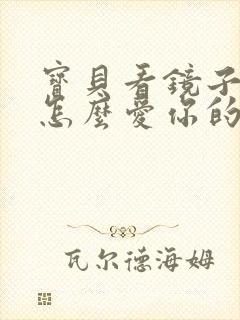 寶貝看鏡子
怎麼愛你的
瓦尔德海姆